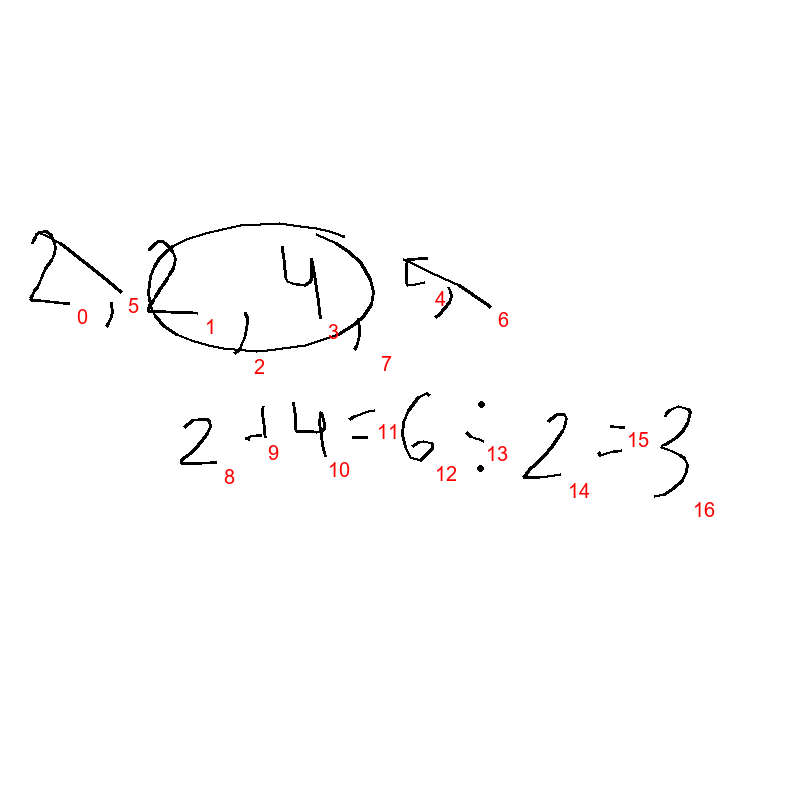 2, 2, 4, ,
0 5 1 2 3 7 4 6
2 + 4 = 6 ÷ 2 = 3
8 9 10 11 12 13 14 15 16